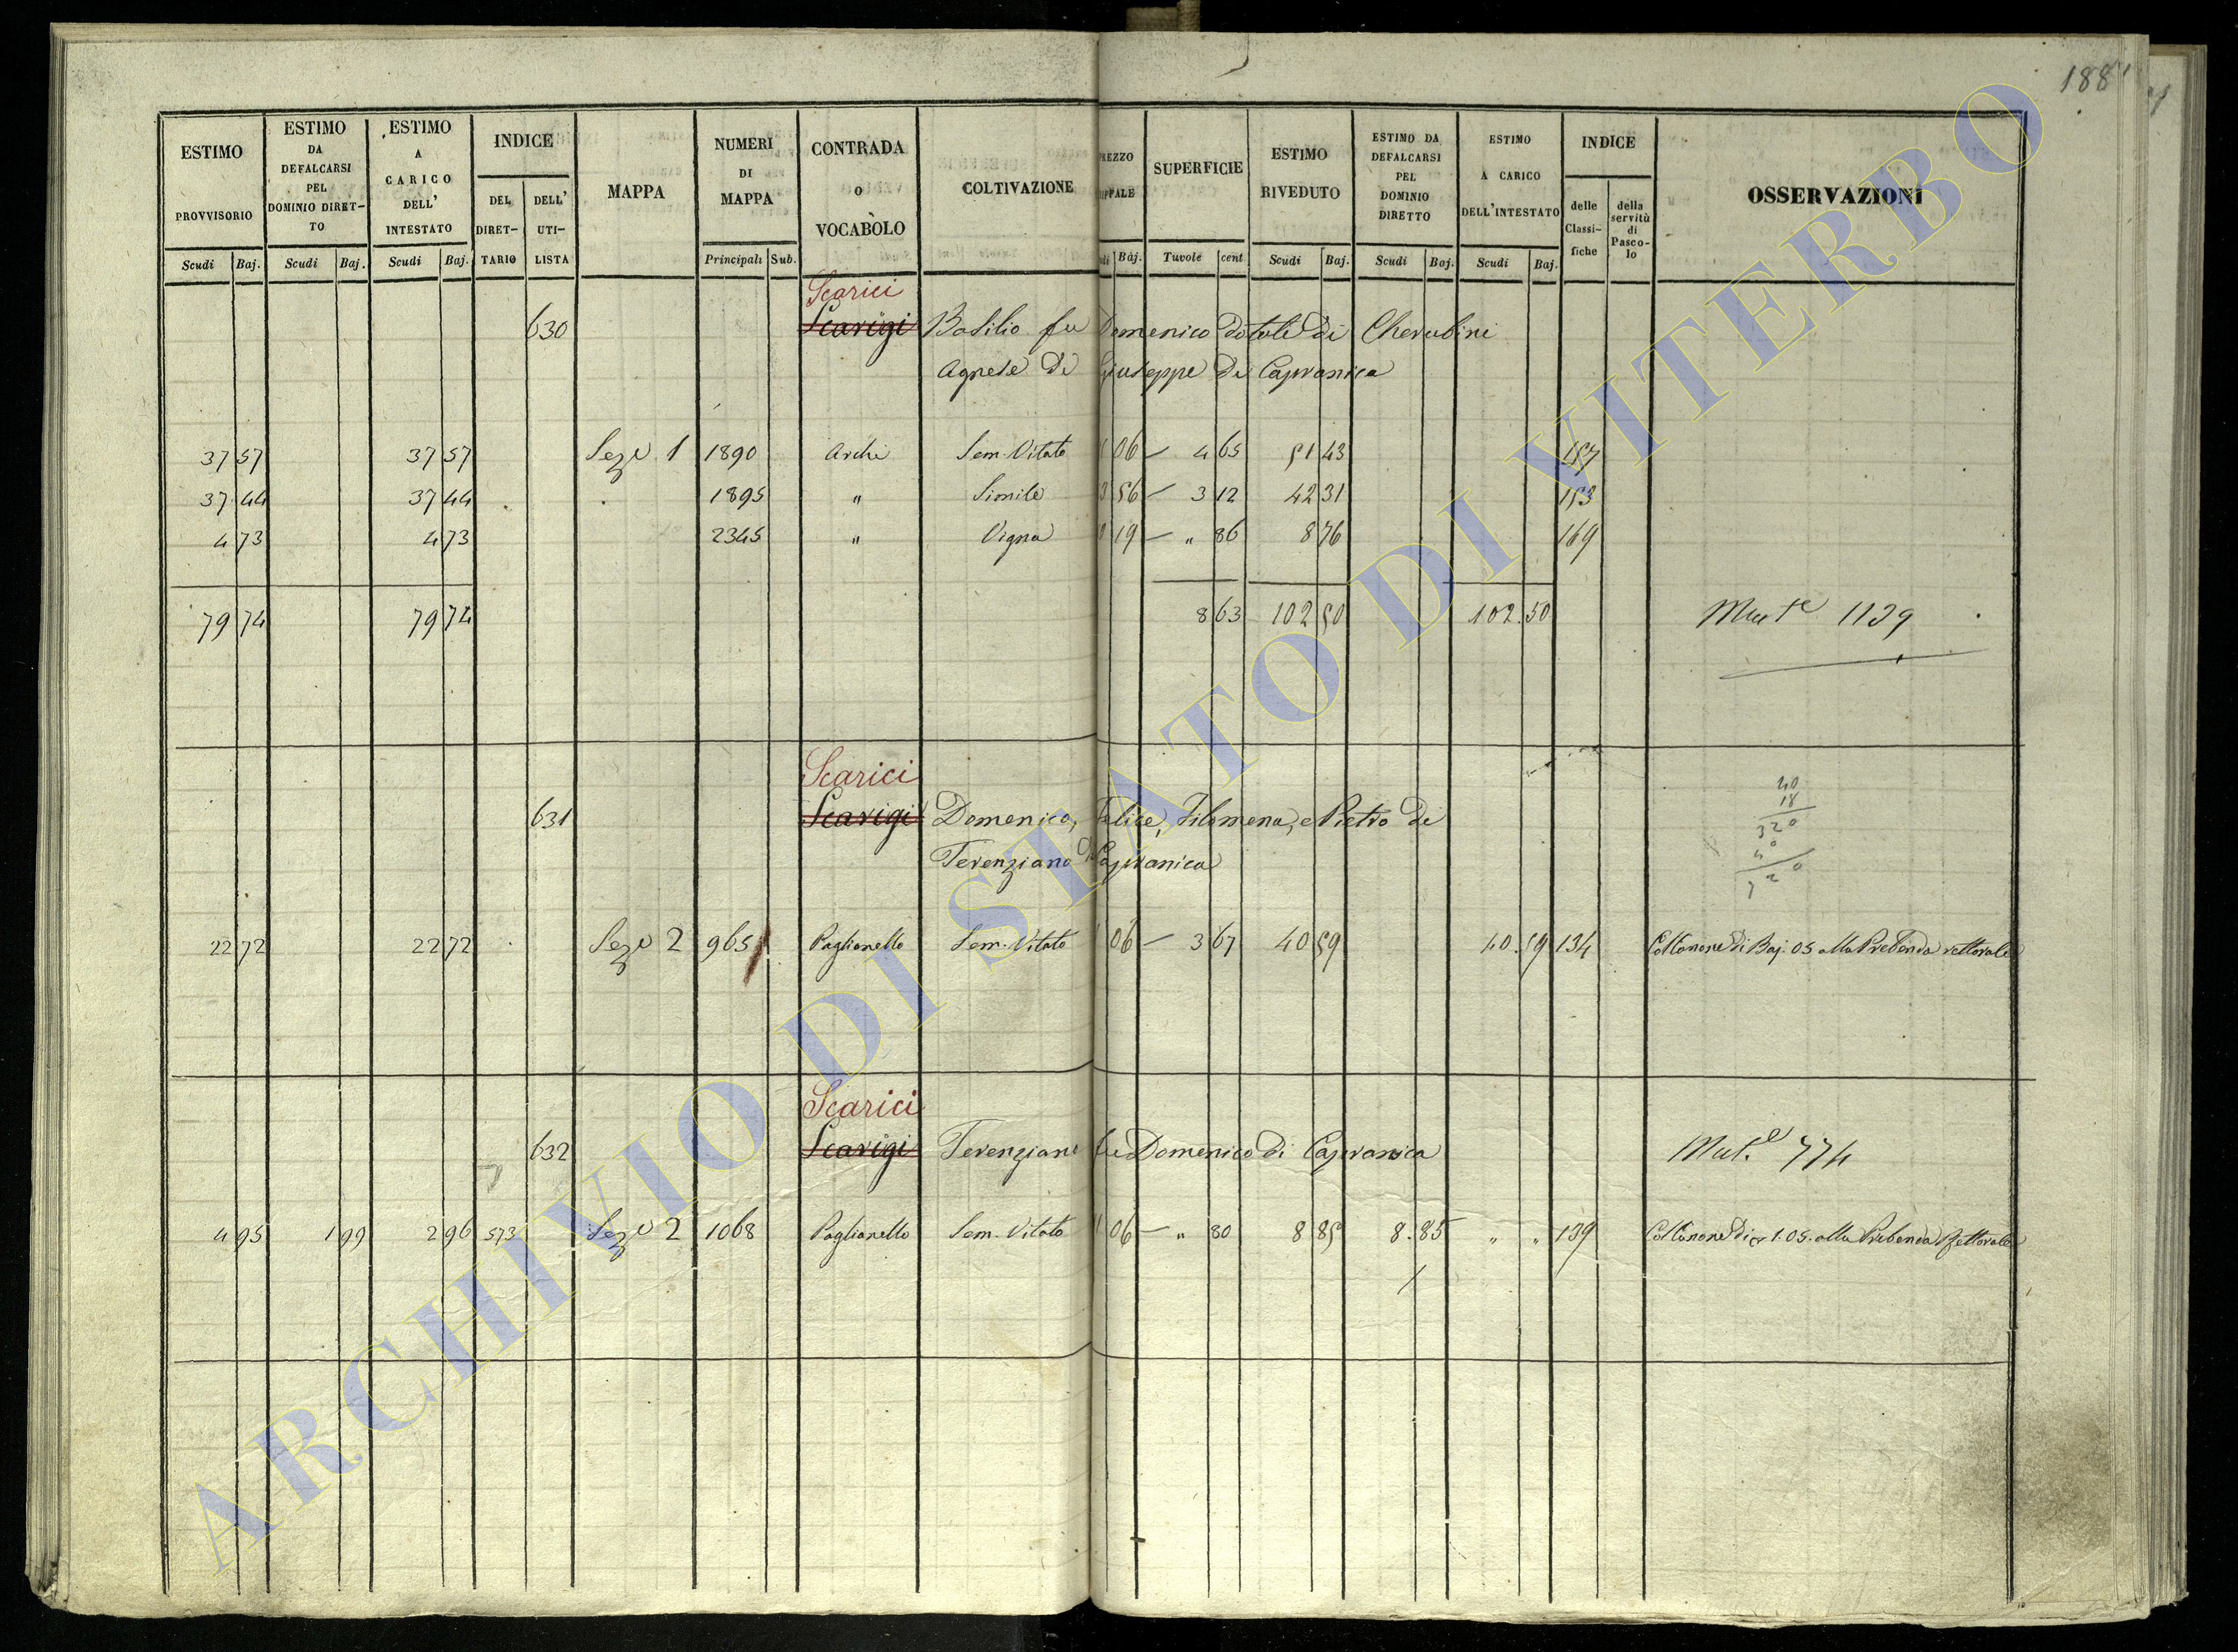 188
ESTIMO PROVVISORIO | ESTIMO DA DEFALCARSI PEL DOMINIO DIRET-TO | ESTIMO A CARICO DELL' INTESTATO | INDICE | MAPPA | NUMERI DI MAPPA | CONTRADA O VOCABOLO | COLTIVAZIONE | REZZO PPALE | SUPERFICIE | ESTIMO RIVEDUTO | ESTIMO DA DEFALCARSI PEL DOMINIO DIRETTO | ESTIMO A CARICO DELL'INTESTATO | INDICE | OSSERVAZIONI
DEL DIRET-TARIO | DELL' UTI-LISTA | delle Classi-fiche | della servitù di Pasco-lo
Scudi | Baj. | Scudi | Baj. | Scudi | Baj. | Principali | Sub. | di | Baj. | Tavole | cent | Scudi | Baj. | Scudi | Baj. | Scudi | Baj.
Scarici
630 Scarigi Basilio fu Domenico dotali di Cherubini
Agnese di Giuseppe di Capranica
37 57 37 57 Sez.e 1 1890 Archi Sem. Vitato 06 — 4 65 51 43 157
37 44 37 44 1895 " Simile 3 56 — 3 12 42 31 153
4 73 4 73 2345 " Vigna 19 — " 86 8 76 169
79 74 79 74 8 63 102 50 102.50 Mut.e 1139
Scarici
631 Scarigi Domenico, Felice, Filomena, e Pietro di
Terenziano di Capranica
40
18
320
40
720
22 72 22 72 Sez.e 2 965 Paglianello Sem. Vitato 06 — 3 67 40 59 40.59 134 Coll'anone di Baj. 05 alla Prebenda rettorale
Scarici
632 Scarigi Terenziano fu Domenico di Capranica Mut.e 774
4 95 1 99 2 96 573 Sez.e 2 1068 Paglianello Sem. Vitato 06 — " 80 8 85 8.85 " " 139 Coll'anone di 1.05. alla Prebenda Rettorale
ARCHIVIO DI STATO DI VITERBO